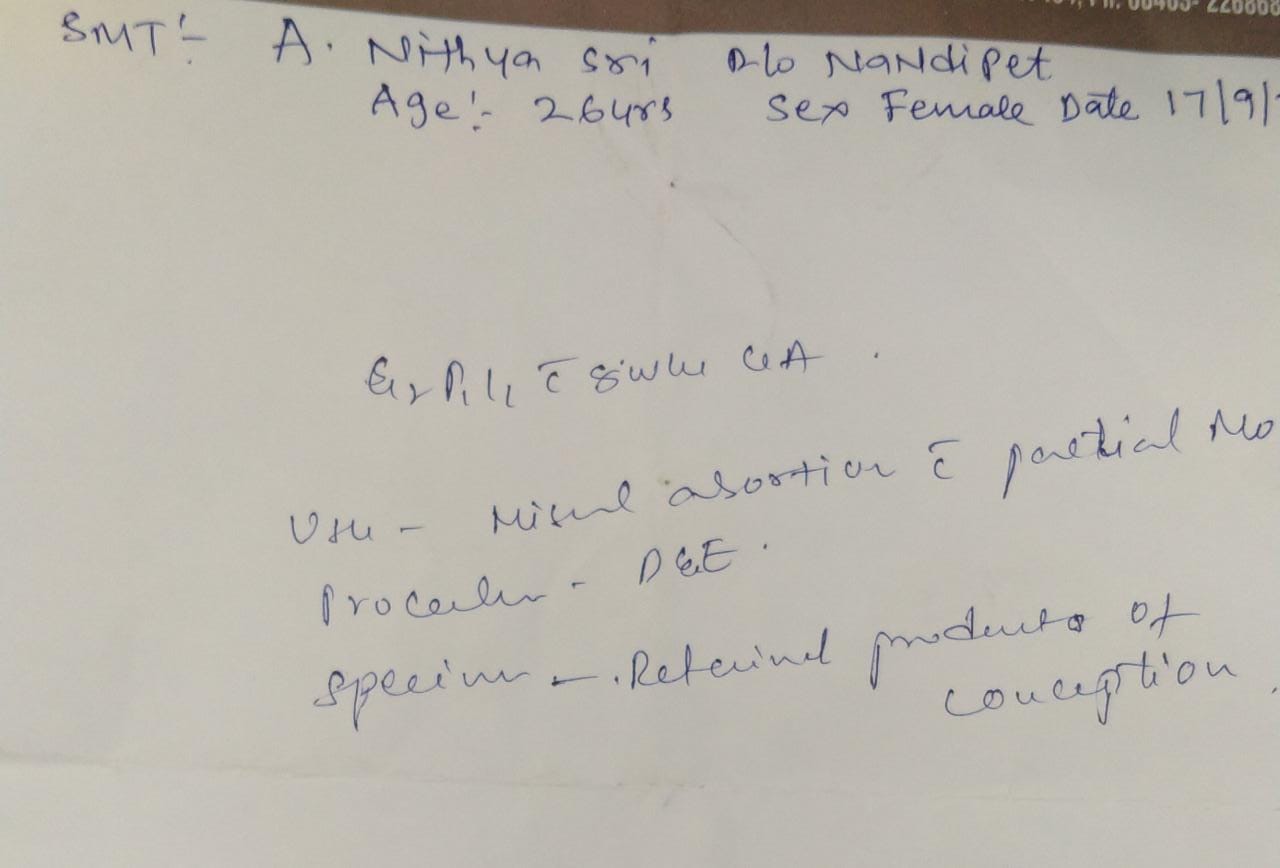 SMT:- A. Nithya sri D/o NaNdipet
Age:- 26yrs Sex Female Date 17/9/
G2P1L1 c̄ 8 wks GA.
- Missed abortion c̄ partial Mo
Procedure - D&E.
specimen - Retained products of
conception.